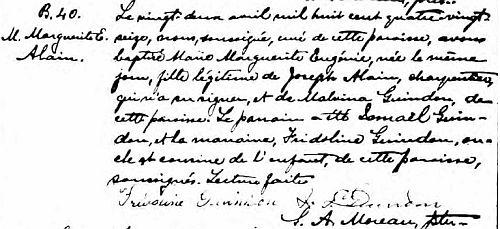 B. 40.
M. Marguerite E.
Alain.
Le vingt-deux avril mil huit cent quatre-vingt-
seize, nous, soussigné, curé de cette paroisse, avons
baptisé Marie Marguerite Eugénie, née le même
jour, fille légitime de Joseph Alain, charpentier,
qui n'a su signer, et de Malvina Guindon, de
cette paroisse. Le parrain a été Ismaël Guin-
don, et la marraine, Fridoline Guindon, on-
cle et cousine de l'enfant, de cette paroisse,
soussignés. Lecture faite.
Fridoline Guindon
S. A. Moreau, ptre-